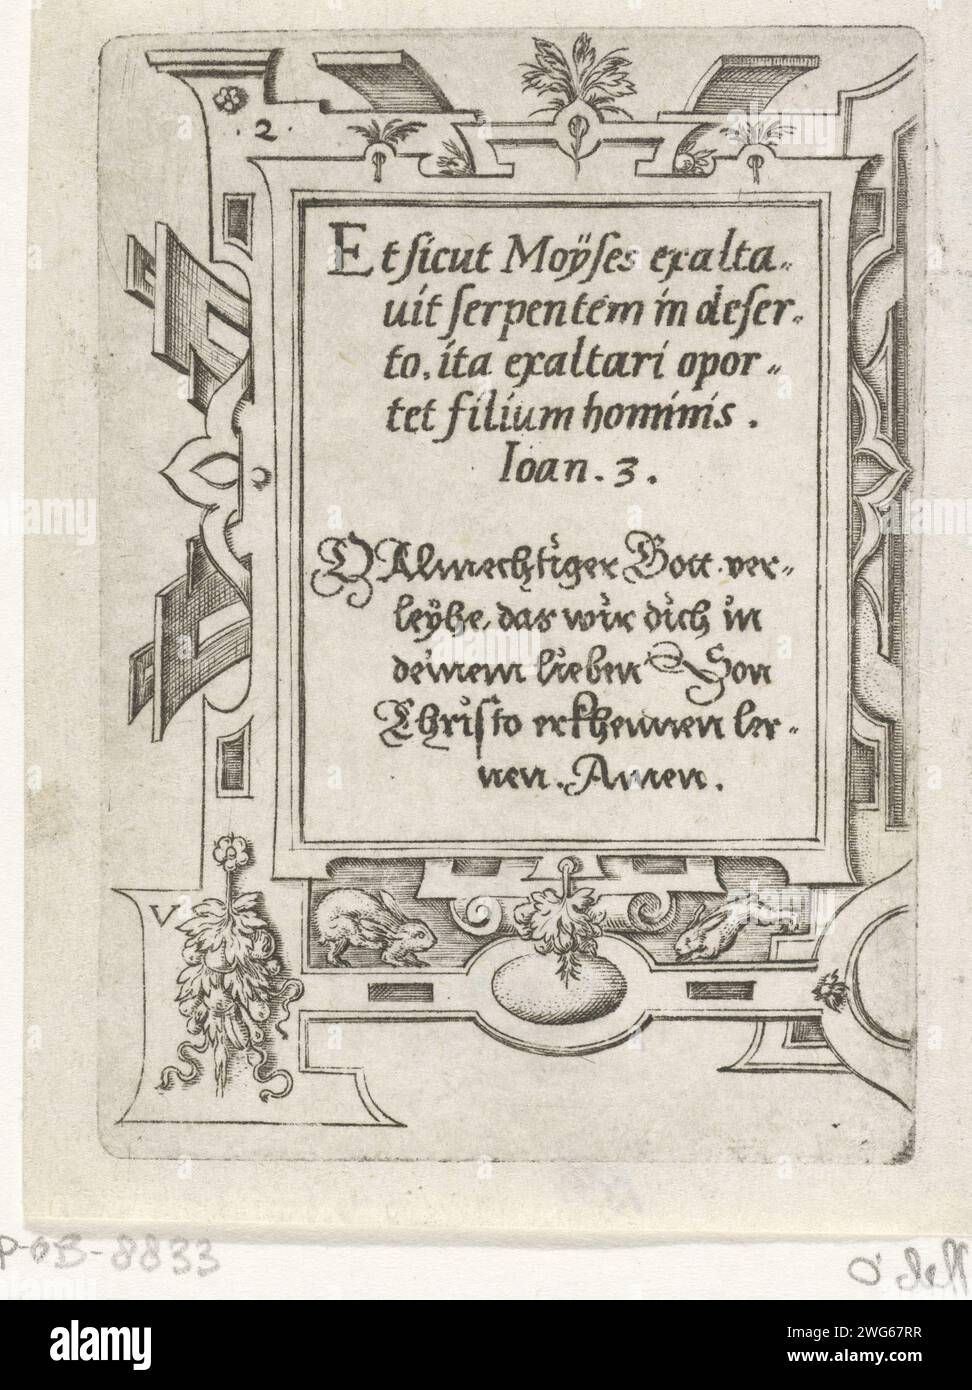 . 2 .
Et sicut Moÿses exalta„
uit serpentem in deser„
to, ita exaltari opor„
tet filium hominis .
Ioan . 3 .
O Almechtiger Gott ver„
leÿhe, das wir dich in
deinem lieben Son
Christo erkhennen ler„
nen . Amen .
V
P-OB-8833
alamy
Image ID: 2WG67RR
www.alamy.com